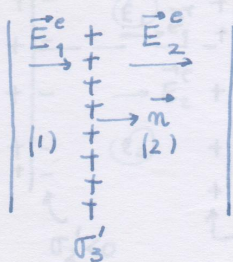 E₁ᵉ + E₂ᵉ
+
+
+
+ n
(1) + (2)
+
+
+
σ₃'